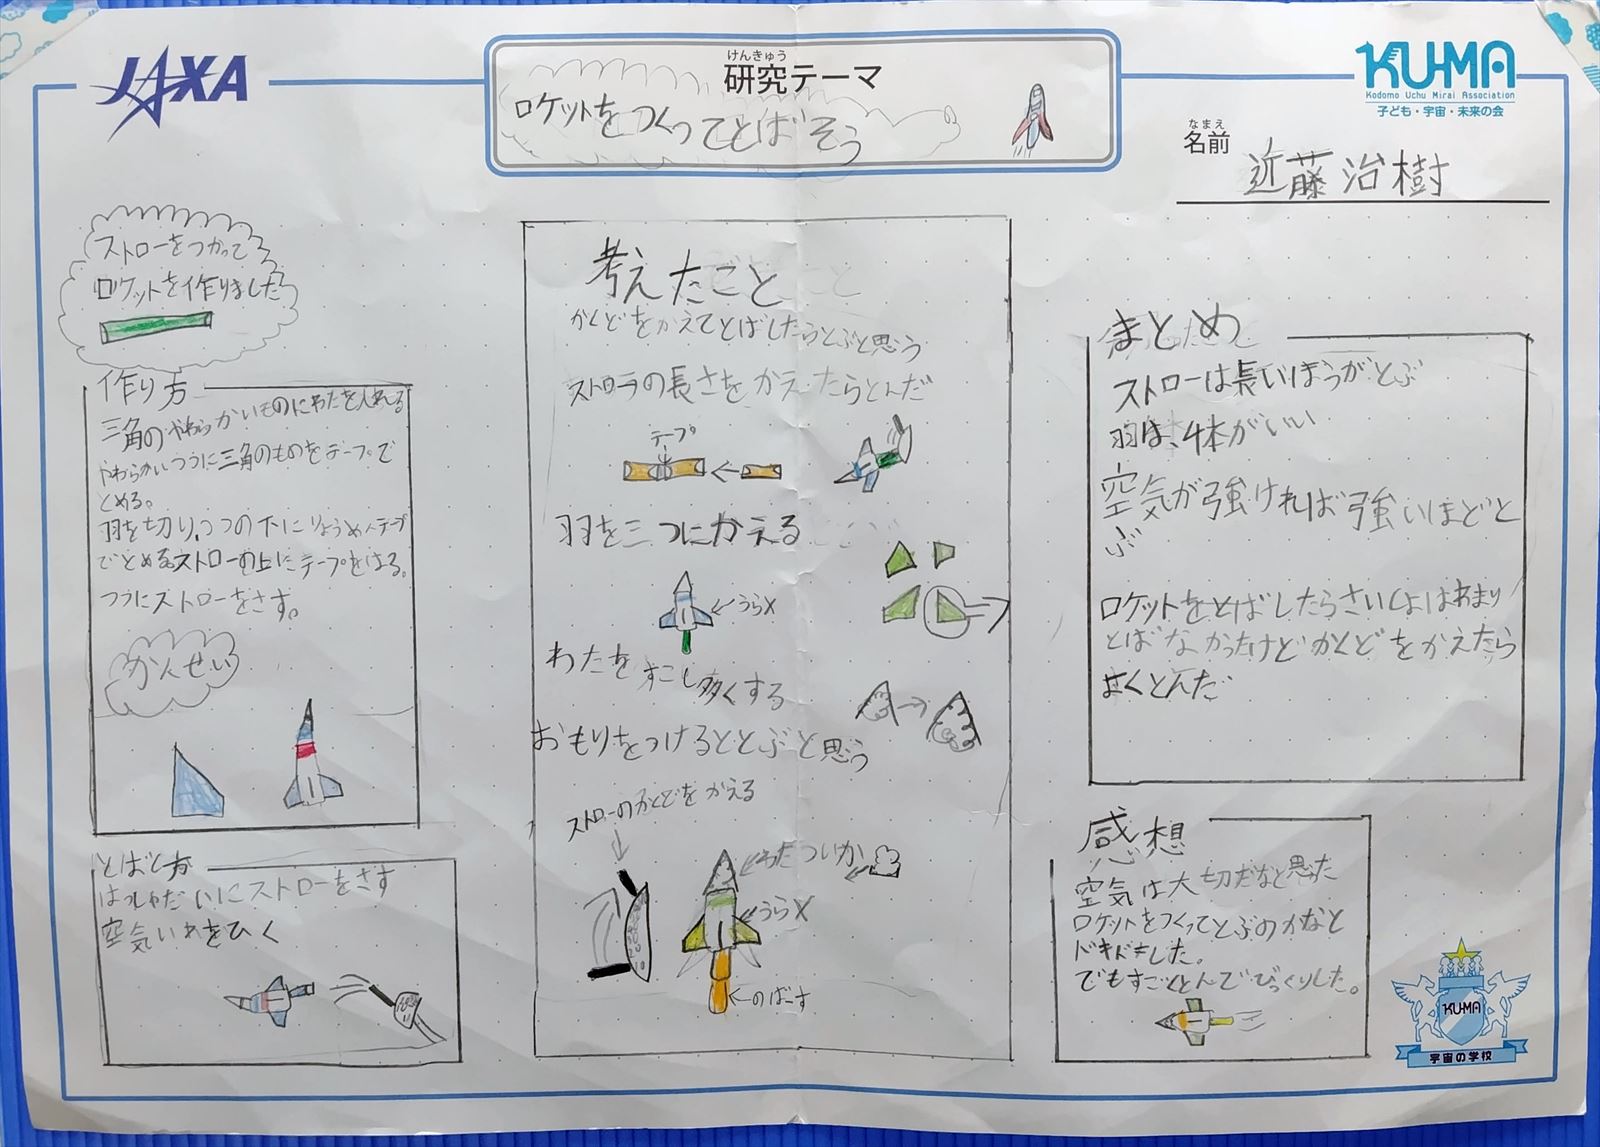 JAXA
けんきゅう
研究テーマ
ロケットをつくってとばそう
KU-MA
Kodomo Uchu Mirai Association
子ども・宇宙・未来の会
なまえ
名前
近藤治樹
ストローをつかって
ロケットを作りました
作り方
三角のやわらかいものにわたを入れる
やわらかいつつに三角のものをテープで
とめる。
羽を切り、つつの下にりょうめんテープ
でとめるストローの上にテープをはる。
つつにストローをさす。
かんせい
とばし方
はっしゃだいにストローをさす
空気いれをひく
考えたこと
かくどをかえてとばしたらとぶと思う
ストローの長さをかえたらとんだ
テープ
羽を三つにかえる
うら×
わたをすこし多くする
おもりをつけるととぶと思う
ストローのかくどをかえる
わたついか
うら×
のばーす
まとめ
ストローは長いほうがとぶ
羽は、4本がいい
空気が強ければ強いほどと
ぶ
ロケットをとばしたらさいしょはあまり
とばなかったけどかくどをかえたら
よくとんだ
感想
空気は大切だなと思った
ロケットをつくってとぶのかなと
ドキドキした。
でもすごくとんでびっくりした。
KU-MA
宇宙の学校